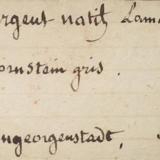 rgent natif Lam
ornstein gris.
ngeorgenstadt,